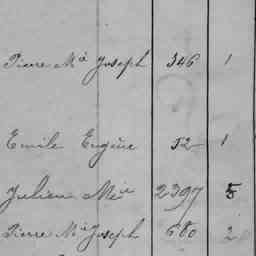 Pierre M.ie Joseph 346 1
Emile Eugène 52 1
Julien M.ie 2397 5
Pierre M.ie Joseph 680 2